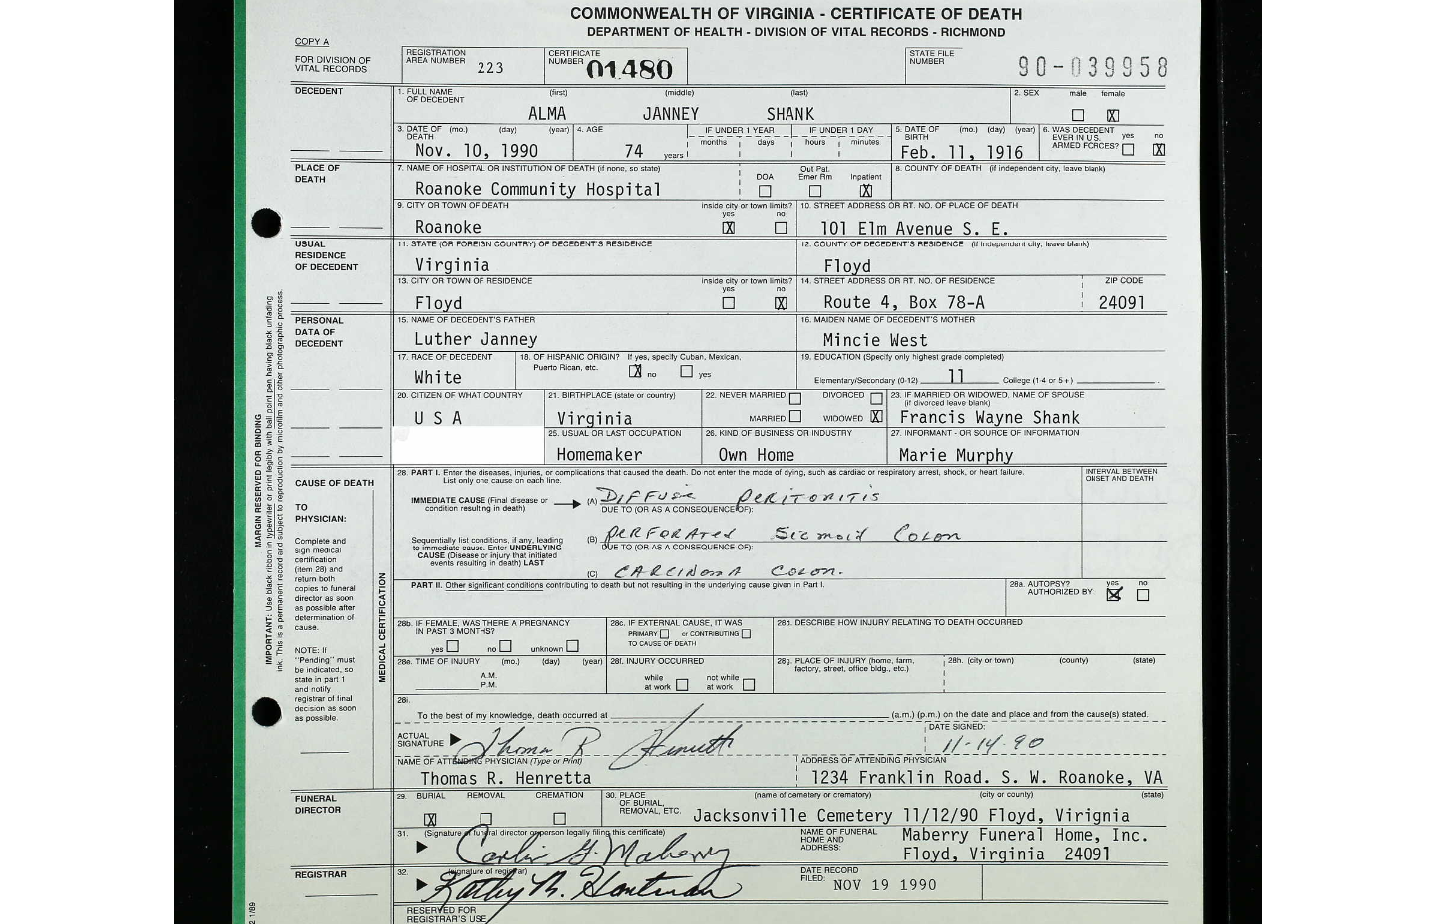 COMMONWEALTH OF VIRGINIA - CERTIFICATE OF DEATH
DEPARTMENT OF HEALTH - DIVISION OF VITAL RECORDS - RICHMOND
COPY A
FOR DIVISION OF VITAL RECORDS
REGISTRATION AREA NUMBER 223
CERTIFICATE NUMBER 01480
STATE FILE NUMBER 90-039958
DECEDENT
1. FULL NAME OF DECEDENT (first) (middle) (last)
ALMA JANNEY SHANK
2. SEX male female X
3. DATE OF DEATH (mo.) (day) (year)
Nov. 10, 1990
4. AGE
74 years
IF UNDER 1 YEAR months days
IF UNDER 1 DAY hours minutes
5. DATE OF BIRTH (mo.) (day) (year)
Feb. 11, 1916
6. WAS DECEDENT EVER IN U.S. ARMED FORCES? yes no X
PLACE OF DEATH
7. NAME OF HOSPITAL OR INSTITUTION OF DEATH (if none, so state)
Roanoke Community Hospital
DOA Out Pat. Emer Rm Inpatient X
8. COUNTY OF DEATH (if independent city, leave blank)
9. CITY OR TOWN OF DEATH
Roanoke
inside city or town limits? yes X no
10. STREET ADDRESS OR RT. NO. OF PLACE OF DEATH
101 Elm Avenue S. E.
USUAL RESIDENCE OF DECEDENT
11. STATE (OR FOREIGN COUNTRY) OF DECEDENT'S RESIDENCE
Virginia
12. COUNTY OF DECEDENT'S RESIDENCE (if independent city, leave blank)
Floyd
13. CITY OR TOWN OF RESIDENCE
Floyd
inside city or town limits? yes no X
14. STREET ADDRESS OR RT. NO. OF RESIDENCE
Route 4, Box 78-A
ZIP CODE
24091
PERSONAL DATA OF DECEDENT
15. NAME OF DECEDENT'S FATHER
Luther Janney
16. MAIDEN NAME OF DECEDENT'S MOTHER
Mincie West
17. RACE OF DECEDENT
White
18. OF HISPANIC ORIGIN? If yes, specify Cuban, Mexican, Puerto Rican, etc. X no yes
19. EDUCATION (Specify only highest grade completed)
Elementary/Secondary (0-12) 11 College (1-4 or 5+)
20. CITIZEN OF WHAT COUNTRY
U S A
21. BIRTHPLACE (state or country)
Virginia
22. NEVER MARRIED DIVORCED
MARRIED WIDOWED X
23. IF MARRIED OR WIDOWED, NAME OF SPOUSE (if divorced leave blank)
Francis Wayne Shank
25. USUAL OR LAST OCCUPATION
Homemaker
26. KIND OF BUSINESS OR INDUSTRY
Own Home
27. INFORMANT - OR SOURCE OF INFORMATION
Marie Murphy
CAUSE OF DEATH
TO PHYSICIAN:
Complete and sign medical certification (item 28) and return both copies to funeral director as soon as possible after determination of cause.
NOTE: If "Pending" must be indicated, so state in part 1 and notify registrar of final decision as soon as possible.
MEDICAL CERTIFICATION
MARGIN RESERVED FOR BINDING
IMPORTANT: Use black ribbon in typewriter or print legibly with ball point pen having black unfading ink. This is a permanent record and subject to reproduction by microfilm and other photographic process.
28. PART I. Enter the diseases, injuries, or complications that caused the death. Do not enter the mode of dying, such as cardiac or respiratory arrest, shock, or heart failure.
List only one cause on each line.
INTERVAL BETWEEN ONSET AND DEATH
IMMEDIATE CAUSE (Final disease or condition resulting in death)
(A) DIFFUSE PERITONITIS
DUE TO (OR AS A CONSEQUENCE OF):
Sequentially list conditions, if any, leading to immediate cause. Enter UNDERLYING CAUSE (Disease or injury that initiated events resulting in death) LAST
(B) PERFORATED SIGMOID COLON
DUE TO (OR AS A CONSEQUENCE OF):
(C) CARCINOMA COLON.
PART II. Other significant conditions contributing to death but not resulting in the underlying cause given in Part I.
28a. AUTOPSY? yes X no
AUTHORIZED BY
28b. IF FEMALE, WAS THERE A PREGNANCY IN PAST 3 MONTHS?
yes no unknown
28c. IF EXTERNAL CAUSE, IT WAS
PRIMARY or CONTRIBUTING
TO CAUSE OF DEATH
28d. DESCRIBE HOW INJURY RELATING TO DEATH OCCURRED
28e. TIME OF INJURY (mo.) (day) (year)
A.M.
P.M.
28f. INJURY OCCURRED
while at work not while at work
28g. PLACE OF INJURY (home, farm, factory, street, office bldg., etc.)
28h. (city or town) (county) (state)
28i.
To the best of my knowledge, death occurred at (a.m.) (p.m.) on the date and place and from the cause(s) stated.
ACTUAL SIGNATURE
Thomas R Henretta
DATE SIGNED:
11-14-90
NAME OF ATTENDING PHYSICIAN (Type or Print)
Thomas R. Henretta
ADDRESS OF ATTENDING PHYSICIAN
1234 Franklin Road. S. W. Roanoke, VA
FUNERAL DIRECTOR
29. BURIAL REMOVAL CREMATION
X
30. PLACE OF BURIAL, REMOVAL, ETC. (name of cemetery or crematory) (city or county) (state)
Jacksonville Cemetery 11/12/90 Floyd, Virignia
31. (Signature of funeral director or person legally filing this certificate)
NAME OF FUNERAL HOME AND ADDRESS:
Maberry Funeral Home, Inc.
Floyd, Virginia 24091
REGISTRAR
32. (signature of registrar)
Kathy M.
DATE RECORD FILED:
NOV 19 1990
RESERVED FOR REGISTRAR'S USE
2 1/89